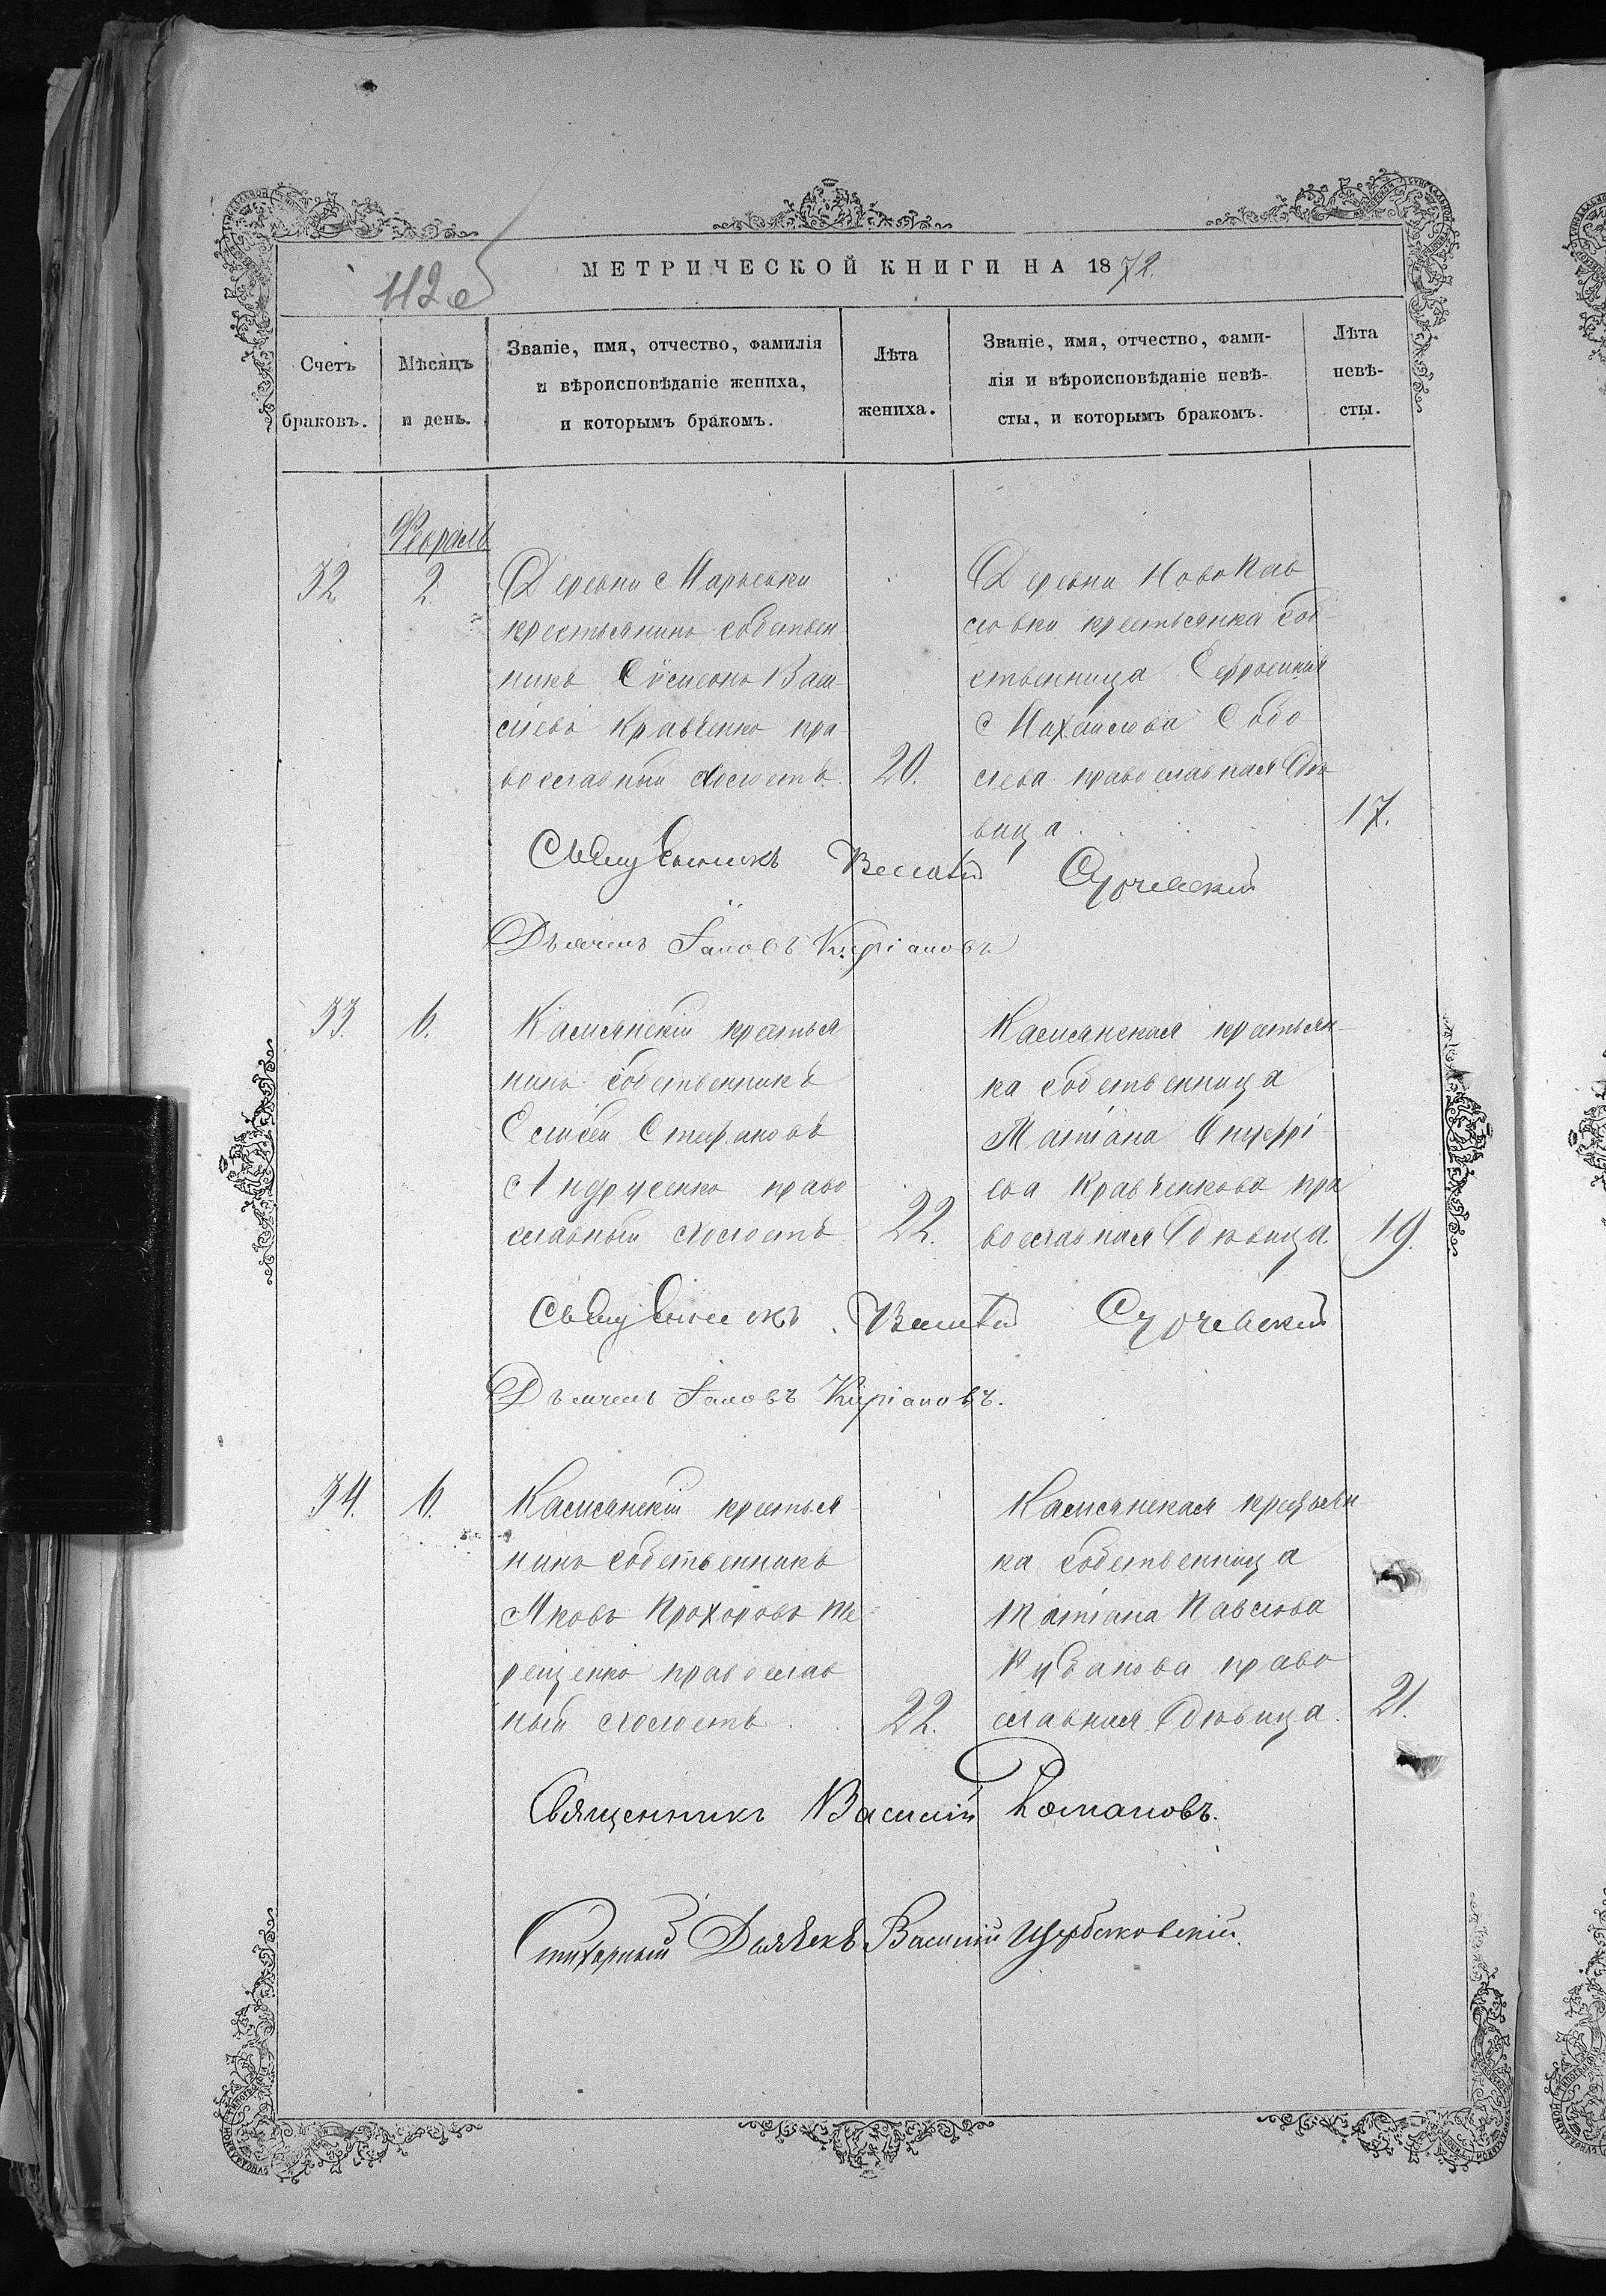 МЕТРИЧЕСКОЙ КНИГИ НА 1872.
Счетъ браковъ.
Мѣсяцъ и день.
Званіе, имя, отчество, фамилія
и вѣроисповѣданіе жениха,
и которымъ бракомъ.
Лѣта жениха.
Званіе, имя, отчество, фами-
лія и вѣроисповѣданіе невѣ-
сты, и которымъ бракомъ.
Лѣта невѣ-
сты.
Февраль
32
2.
Деревни Марьевки
крестьянинъ собствен
никъ Сѵмеонъ Васи-
лievъ Кравченко пра
вославный холостъ.
20.
Деревни НовоПав
ловки крестьянка соб-
ственница Ефросинія
Михаилова Собо
лева православная дѣ
вица.
17.
Священникъ Василій
Дьячекъ Іаковъ Кипріановъ
33.
6.
Камянскій крестья
нинъ собственникъ
Елисей Стефановъ
Андрусенко право
славный холостъ
22.
Камянская крестьян-
ка собственница
Татіана Онуфрі
ева Кравченкова пра
вославная дѣвица.
19.
Священникъ Василій
Дьячекъ Іаковъ Кипріановъ.
34.
6.
Камянскій крестья
нинъ собственникъ
Яковъ Прохоровъ Те
рещенко православ
ный холостъ.
22.
Камянская крестьян
ка собственница
Татіана Павлова
Кубанова право
славная дѣвица.
21.
Священникъ Василій Романовъ.
Стихарный Дьячекъ Василій Щербаковскій.